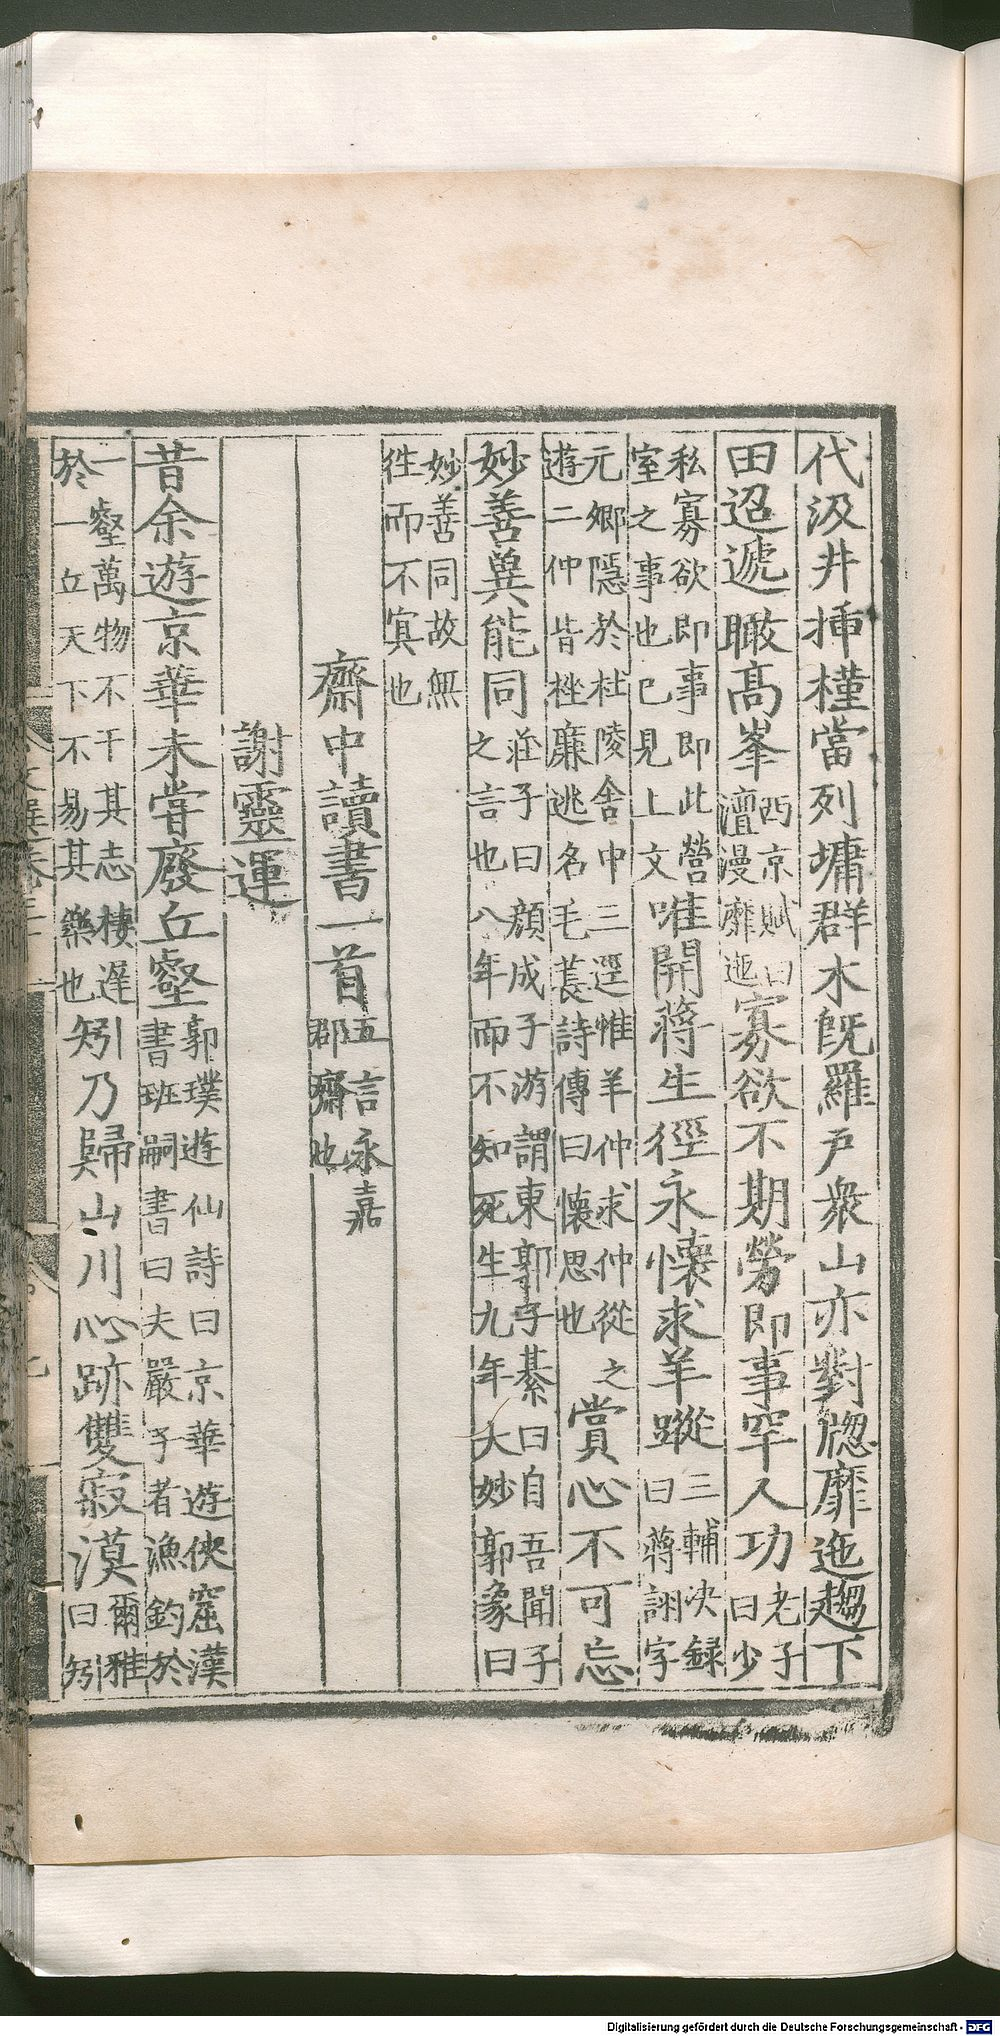 代汲井挿槿當列墉群水既羅戶衆山亦對牕靡迤趨下
田迢遞瞰高峯西京賦曰澶漫靡迤寡欲不期勞即事罕人功老子曰少
私寡欲即事即此營室之事也已見上文唯開蔣生徑永懷求羊蹤三輔決録曰蔣詡字
元卿隱於杜陵舍中三逕惟羊仲求仲從之遊二仲皆挫廉逃名毛萇詩傳曰懷思也賞心不可忘
妙善兾能同莊子曰顔成子游謂東郭子綦曰自吾聞子之言也八年而不知死生九年大妙郭象曰
妙善同故無徃而不冥也
齋中讀書一首五言永嘉郡齋也
謝靈運
昔余遊京華未甞廢丘壑郭璞遊仙詩曰京華遊俠窟漢書班嗣書曰夫嚴子者漁釣於
一壑萬物不干其志棲遲於一丘天下不易其樂也矧乃歸山川心跡雙寂漠爾雅曰矧
Digitalisierung gefördert durch die Deutsche Forschungsgemeinschaft - DFG